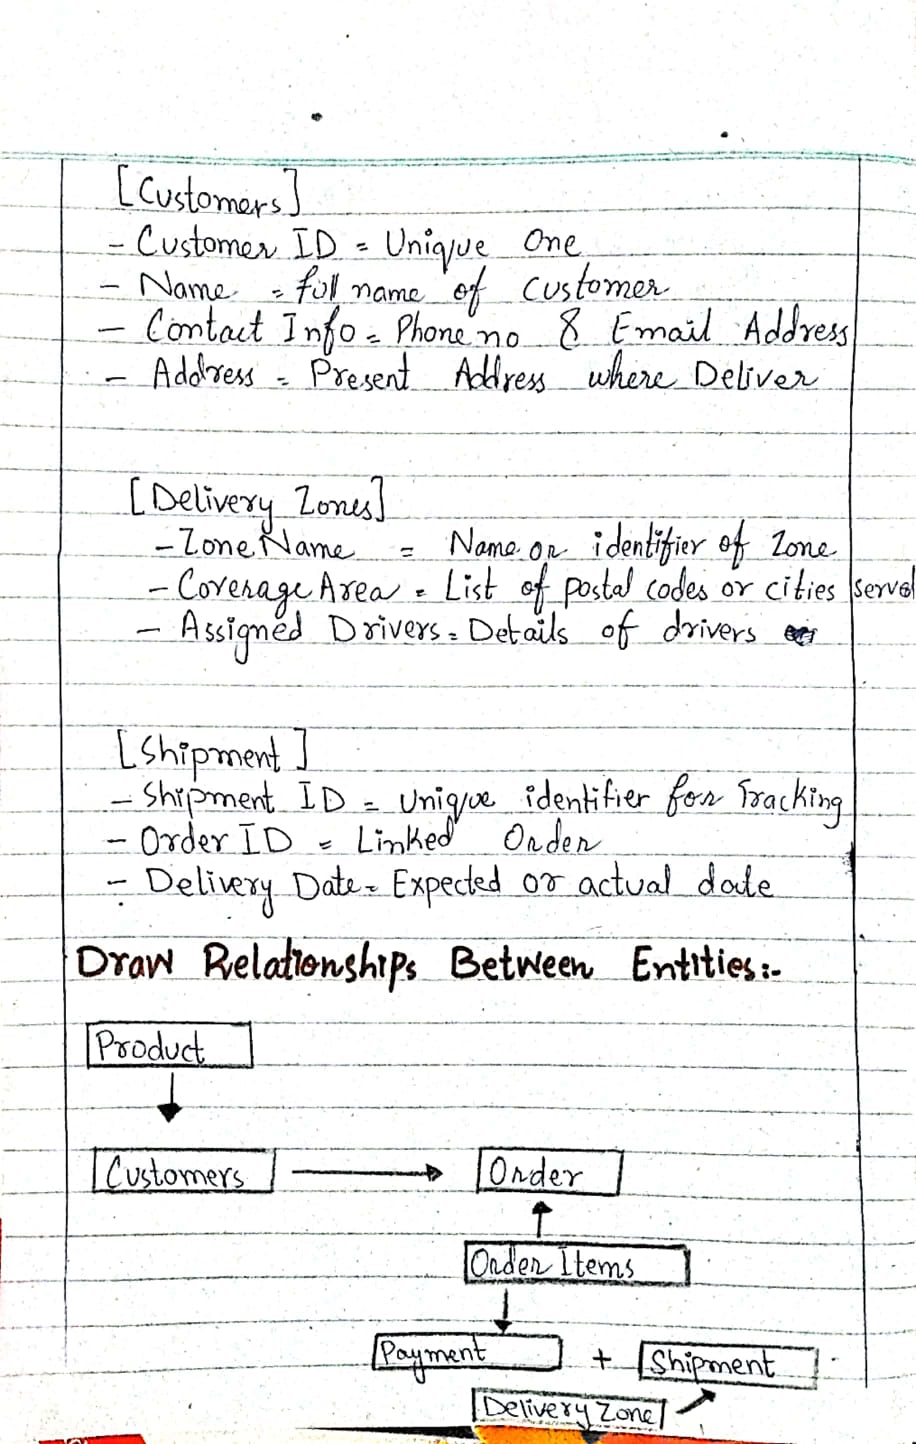 [Customers]
- Customer ID = Unique One
- Name = full name of customer
- Contact Info = Phone no & Email Address
- Address = Present Address where Deliver
[Delivery Zones]
- Zone Name = Name or identifier of Zone
- Coverage Area = List of postal codes or cities served
- Assigned Drivers = Details of drivers
[Shipment]
- Shipment ID = Unique identifier for Tracking
- Order ID = Linked Order
- Delivery Date = Expected or actual date
Draw Relationships Between Entities:-
Product
Customers → Order
Order Items
Payment + Shipment
Delivery Zone